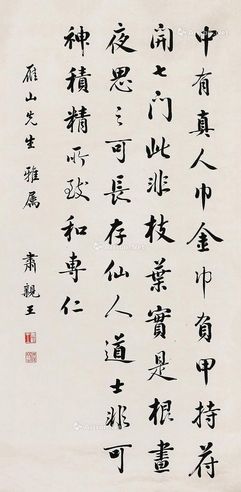 中有真人巾金巾負甲持苻
開七門此非枝葉實是根晝
夜思之可長存仙人道士非可
神積精所致和專仁
雁山先生雅屬
肅親王